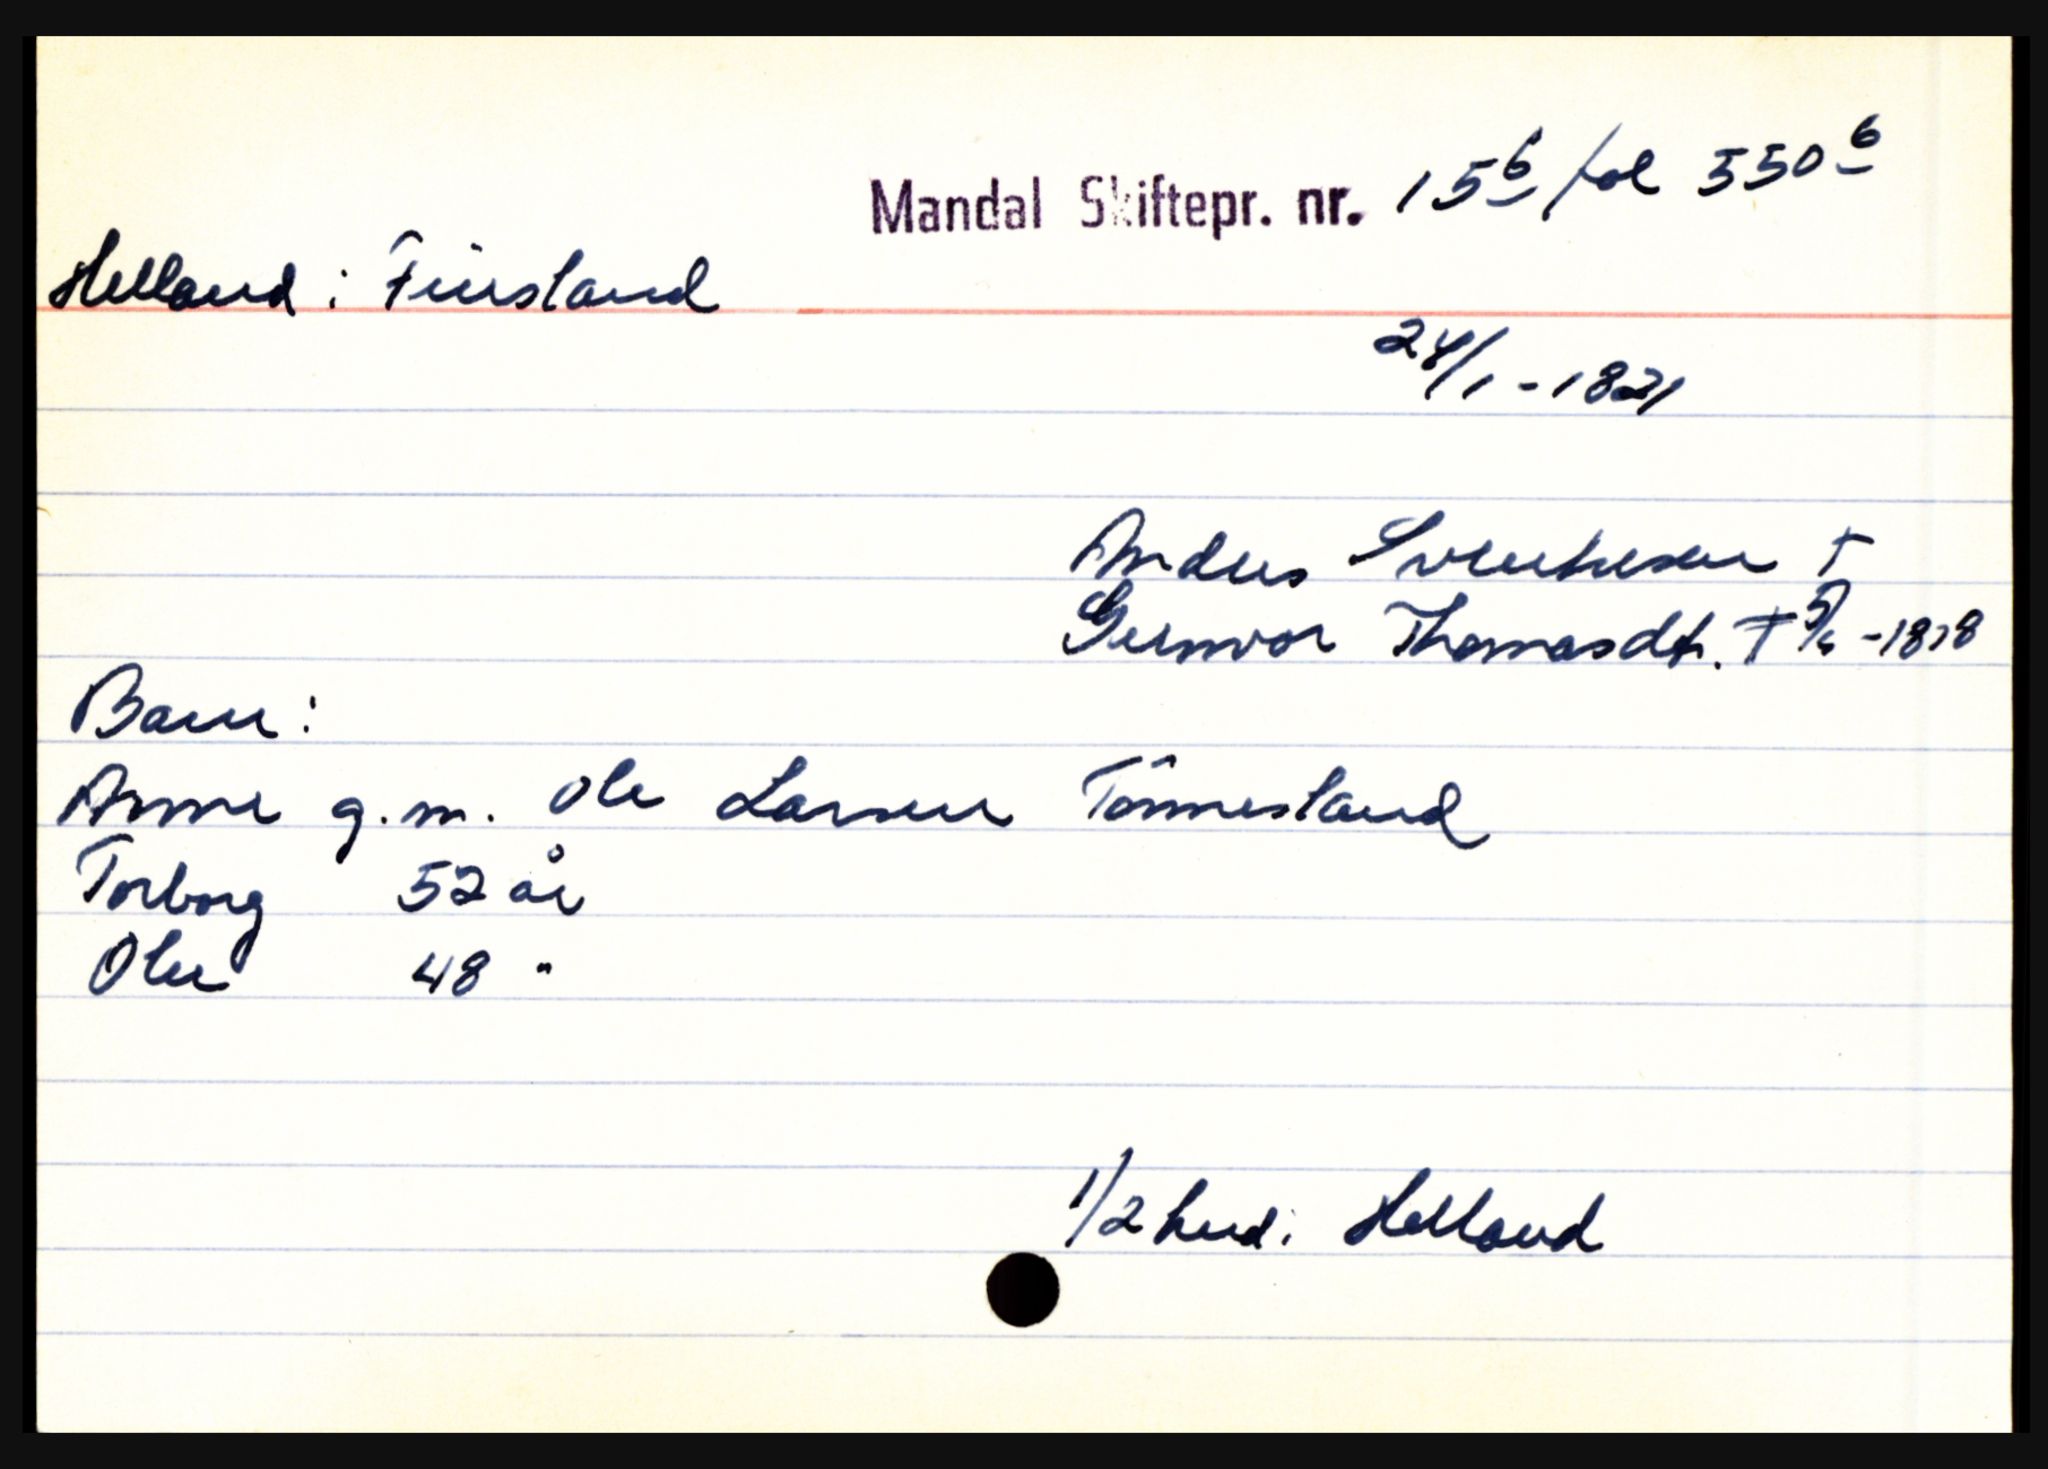 Mandal Skiftepr. nr. 15<sup>b</sup> fol 550<sup>b</sup>
Helland i Finsland
24/1 - 1821
Anders Sventsesen †
Gunvor Thomasdt. † 5/6 - 1818
Barn:
Anne g.m. Ole Larsen Tönnesland
Torborg 52 år
Olen 48 "
1/2 hud i Helland